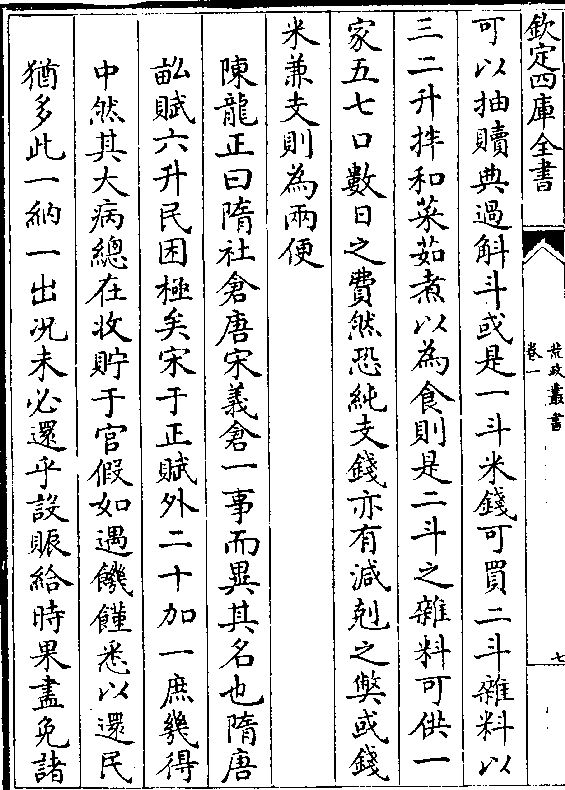 欽定四庫全書
荒政叢書
卷一
七
可以抽贖典過斛斗或是一斗米錢可買二斗雜料以
三二升拌和菜茹煮以為食則是二斗之雜料可供一
家五七口數日之費然恐純支錢亦有減剋之弊或錢
米兼支則為兩便
陳龍正曰隋社倉唐宋義倉一事而異其名也隋唐
畝賦六升民困極矣宋于正賦外二十加一庶幾得
中然其大病總在收貯于官假如遇饑饉悉以還民
猶多此一納一出况未必還乎設賑給時果盡免諸